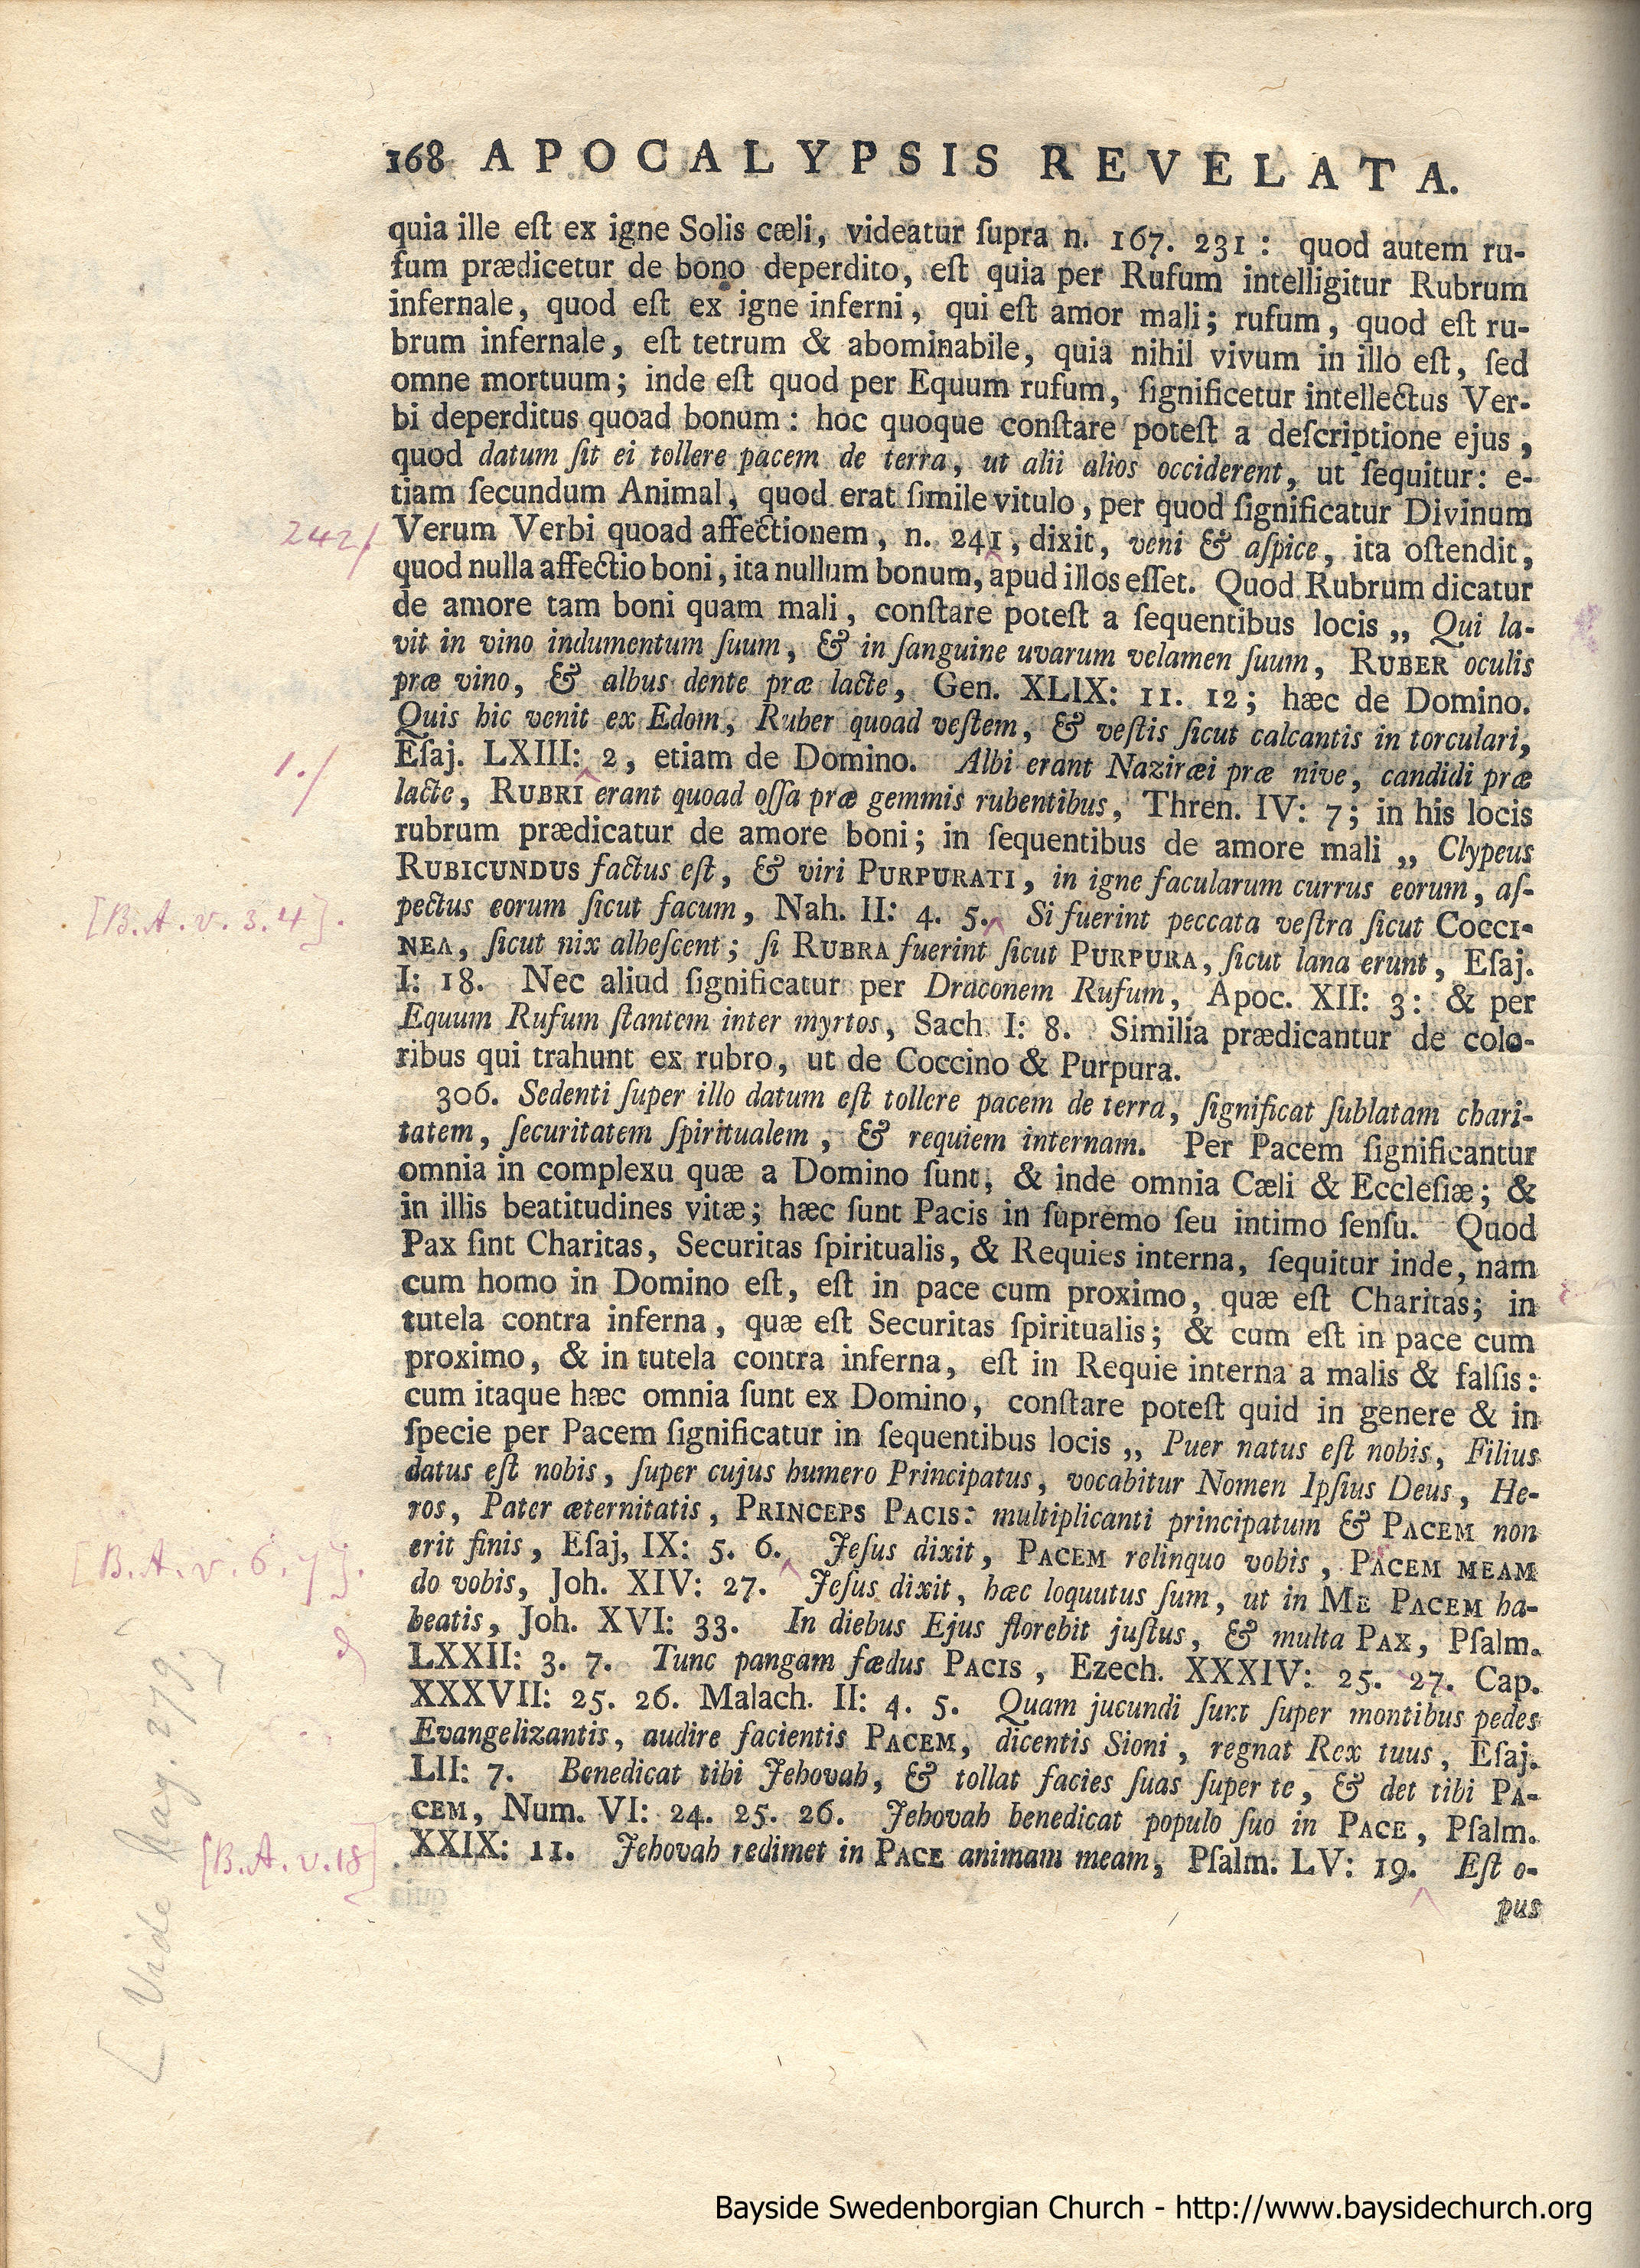 168 APOCALYPSIS REVELATA.
quia ille eſt ex igne Solis cæli, videatur ſupra n. 167. 231 : quod autem ru-
fum prædicetur de bono deperdito, eſt quia per Rufum intelligitur Rubrum
infernale, quod eſt ex igne inferni, qui eſt amor mali; rufum, quod eſt ru-
brum infernale, eſt tetrum & abominabile, quia nihil vivum in illo eſt, ſed
omne mortuum; inde eſt quod per Equum rufum, ſignificetur intellectus Ver-
bi deperditus quoad bonum: hoc quoque conſtare poteſt a deſcriptione ejus,
quod datum ſit ei tollere pacem de terra, ut alii alios occiderent, ut ſequitur: e-
tiam ſecundum Animal, quod erat ſimile vitulo, per quod ſignificatur Divinum
242/ Verum Verbi quoad affectionem, n. 241, dixit, veni & aſpice, ita oſtendit,
quod nulla affectio boni, ita nullum bonum, apud illos eſſet. Quod Rubrum dicatur
de amore tam boni quam mali, conſtare poteſt a ſequentibus locis „ Qui la-
vit in vino indumentum ſuum, & in ſanguine uvarum velamen ſuum, RUBER oculis
præ vino, & albus dente præ lacte, Gen. XLIX: 11. 12; hæc de Domino.
Quis hic venit ex Edom, Ruber quoad veſtem, & veſtis ſicut calcantis in torculari,
1./ Eſaj. LXIII: 2, etiam de Domino. Albi erant Naziræi præ nive, candidi præ
lacte, RUBRI erant quoad oſſa præ gemmis rubentibus, Thren. IV: 7; in his locis
rubrum prædicatur de amore boni; in ſequentibus de amore mali „ Clypeus
RUBICUNDUS factus eſt, & viri PURPURATI, in igne facularum currus eorum, aſ-
[B.A. v. 3. 4]. pectus eorum ſicut facum, Nah. II: 4. 5. Si fuerint peccata veſtra ſicut COCCI-
NEA, ſicut nix albeſcent; ſi RUBRA fuerint ſicut PURPURA, ſicut lana erunt, Eſaj.
I: 18. Nec aliud ſignificatur per Draconem Rufum, Apoc. XII: 3: & per
Equum Rufum ſtantem inter myrtos, Sach. I: 8. Similia prædicantur de colo-
ribus qui trahunt ex rubro, ut de Coccino & Purpura.
306. Sedenti ſuper illo datum eſt tollere pacem de terra, ſignificat ſublatam chari-
tatem, ſecuritatem ſpiritualem, & requiem internam. Per Pacem ſignificantur
omnia in complexu quæ a Domino ſunt, & inde omnia Cæli & Eccleſiæ; &
in illis beatitudines vitæ; hæc ſunt Pacis in ſupremo ſeu intimo ſenſu. Quod
Pax ſint Charitas, Securitas ſpiritualis, & Requies interna, ſequitur inde, nam
cum homo in Domino eſt, eſt in pace cum proximo, quæ eſt Charitas; in
tutela contra inferna, quæ eſt Securitas ſpiritualis; & cum eſt in pace cum
proximo, & in tutela contra inferna, eſt in Requie interna a malis & falſis:
cum itaque hæc omnia ſunt ex Domino, conſtare poteſt quid in genere & in
ſpecie per Pacem ſignificatur in ſequentibus locis „ Puer natus eſt nobis, Filius
datus eſt nobis, ſuper cujus humero Principatus, vocabitur Nomen Ipſius Deus, He-
ros, Pater æternitatis, PRINCEPS PACIS: multiplicanti principatum & PACEM non
[B.A. v. 6. 7]. erit finis, Eſaj, IX: 5. 6. Jeſus dixit, PACEM relinquo vobis, PACEM MEAM
do vobis, Joh. XIV: 27. Jeſus dixit, hæc loquutus ſum, ut in ME PACEM ha-
beatis, Joh. XVI: 33. In diebus Ejus florebit juſtus, & multa PAX, Pſalm.
LXXII: 3. 7. Tunc pangam fædus PACIS, Ezech. XXXIV: 25. 27. Cap.
XXXVII: 25. 26. Malach. II: 4. 5. Quam jucundi ſunt ſuper montibus pedes
Evangelizantis, audire facientis PACEM, dicentis Sioni, regnat Rex tuus, Eſaj.
LII: 7. Benedicat tibi Jehovah, & tollat facies ſuas ſuper te, & det tibi PA-
CEM, Num. VI: 24. 25. 26. Jehovah benedicat populo ſuo in PACE, Pſalm.
[B.A. v. 18] XXIX: 11. Jehovah redimet in PACE animam meam, Pſalm. LV: 19. Eſt o-
pus
[Vide pag. 279.]
Bayside Swedenborgian Church - http://www.baysidechurch.org